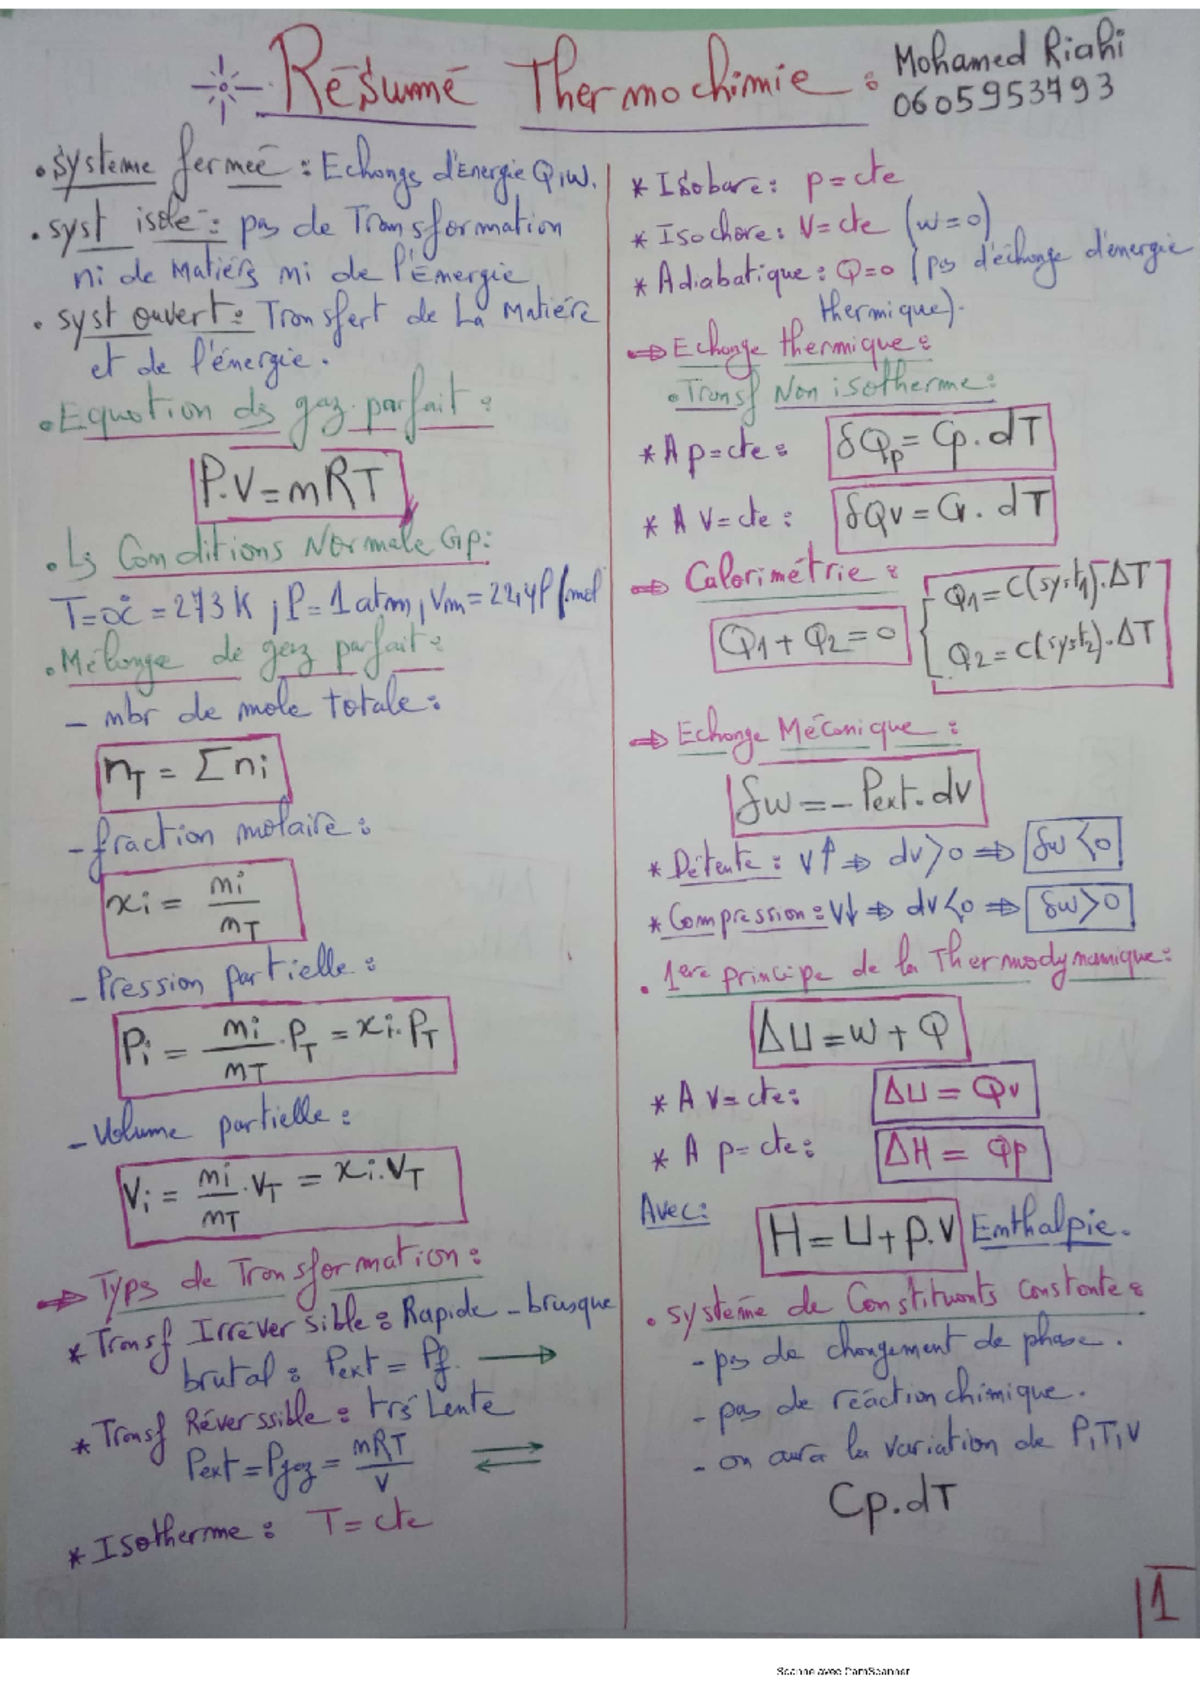 Résumé Thermochimie :
Mohamed Riahi
0605953793
• Systeme fermeé : Echange d'Energie Q,W.
• syst isolé : pas de Transformation
ni de Matiérs ni de l'Energie
• syst ouvert : Transfert de La Matiére
et de l'énergie.
• Equation ds gaz parfait :
P.V = nRT
• Ls Conditions Normale GP :
T=0°C = 273 K ; P = 1 atm, Vm = 22,4 l/mol
• Mélange de gaz parfait :
- nbr de mole totale :
nT = Σ ni
- fraction molaire :
xi = ni / nT
- Pression partielle :
Pi = ni / nT . PT = xi . PT
- Volume partielle :
Vi = ni / nT . VT = xi . VT
⇒ Typs de Transformation :
* Transf Irréversible : Rapide - brusque
brutal : Pext = Pf. →
* Transf Réverssible : trés Lente
Pext = Pgaz = nRT / V ⇌
* Isotherme : T = cte
* Isobare : p = cte
* Isochore : V = cte (w = 0)
* Adiabatique : Q = 0 (ps d'échange d'énergie
thermique).
⇒ Echange thermique :
• Transf Non isotherme :
* A p = cte : δQp = Cp . dT
* A V = cte : δQv = Cv . dT
⇒ Calorimétrie :
Q1 + Q2 = 0
{ Q1 = C(syst1) . ΔT
Q2 = C(syst2) . ΔT
⇒ Echange Mécanique :
δw = - Pext . dv
* Détente : V↑ ⇒ dv > 0 ⇒ δw < 0
* Compression : V↓ ⇒ dv < 0 ⇒ δw > 0
• 1ere principe de la Thermodynamique :
ΔU = W + Q
* A V = cte : ΔU = Qv
* A p = cte : ΔH = Qp
Avec : H = U + p.V Enthalpie.
• systeme de Constituants constante :
- ps de changement de phase.
- pas de réaction chimique.
- on aura la variation de P,T,V
Cp . dT
1
Scanné avec CamScanner